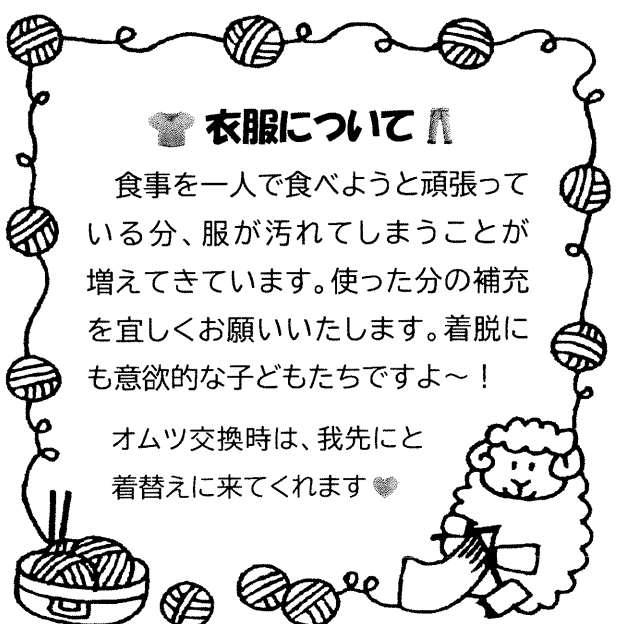 衣服について
食事を一人で食べようと頑張って
いる分、服が汚れてしまうことが
増えてきています。使った分の補充
を宜しくお願いいたします。着脱に
も意欲的な子どもたちですよ～！
オムツ交換時は、我先にと
着替えに来てくれます